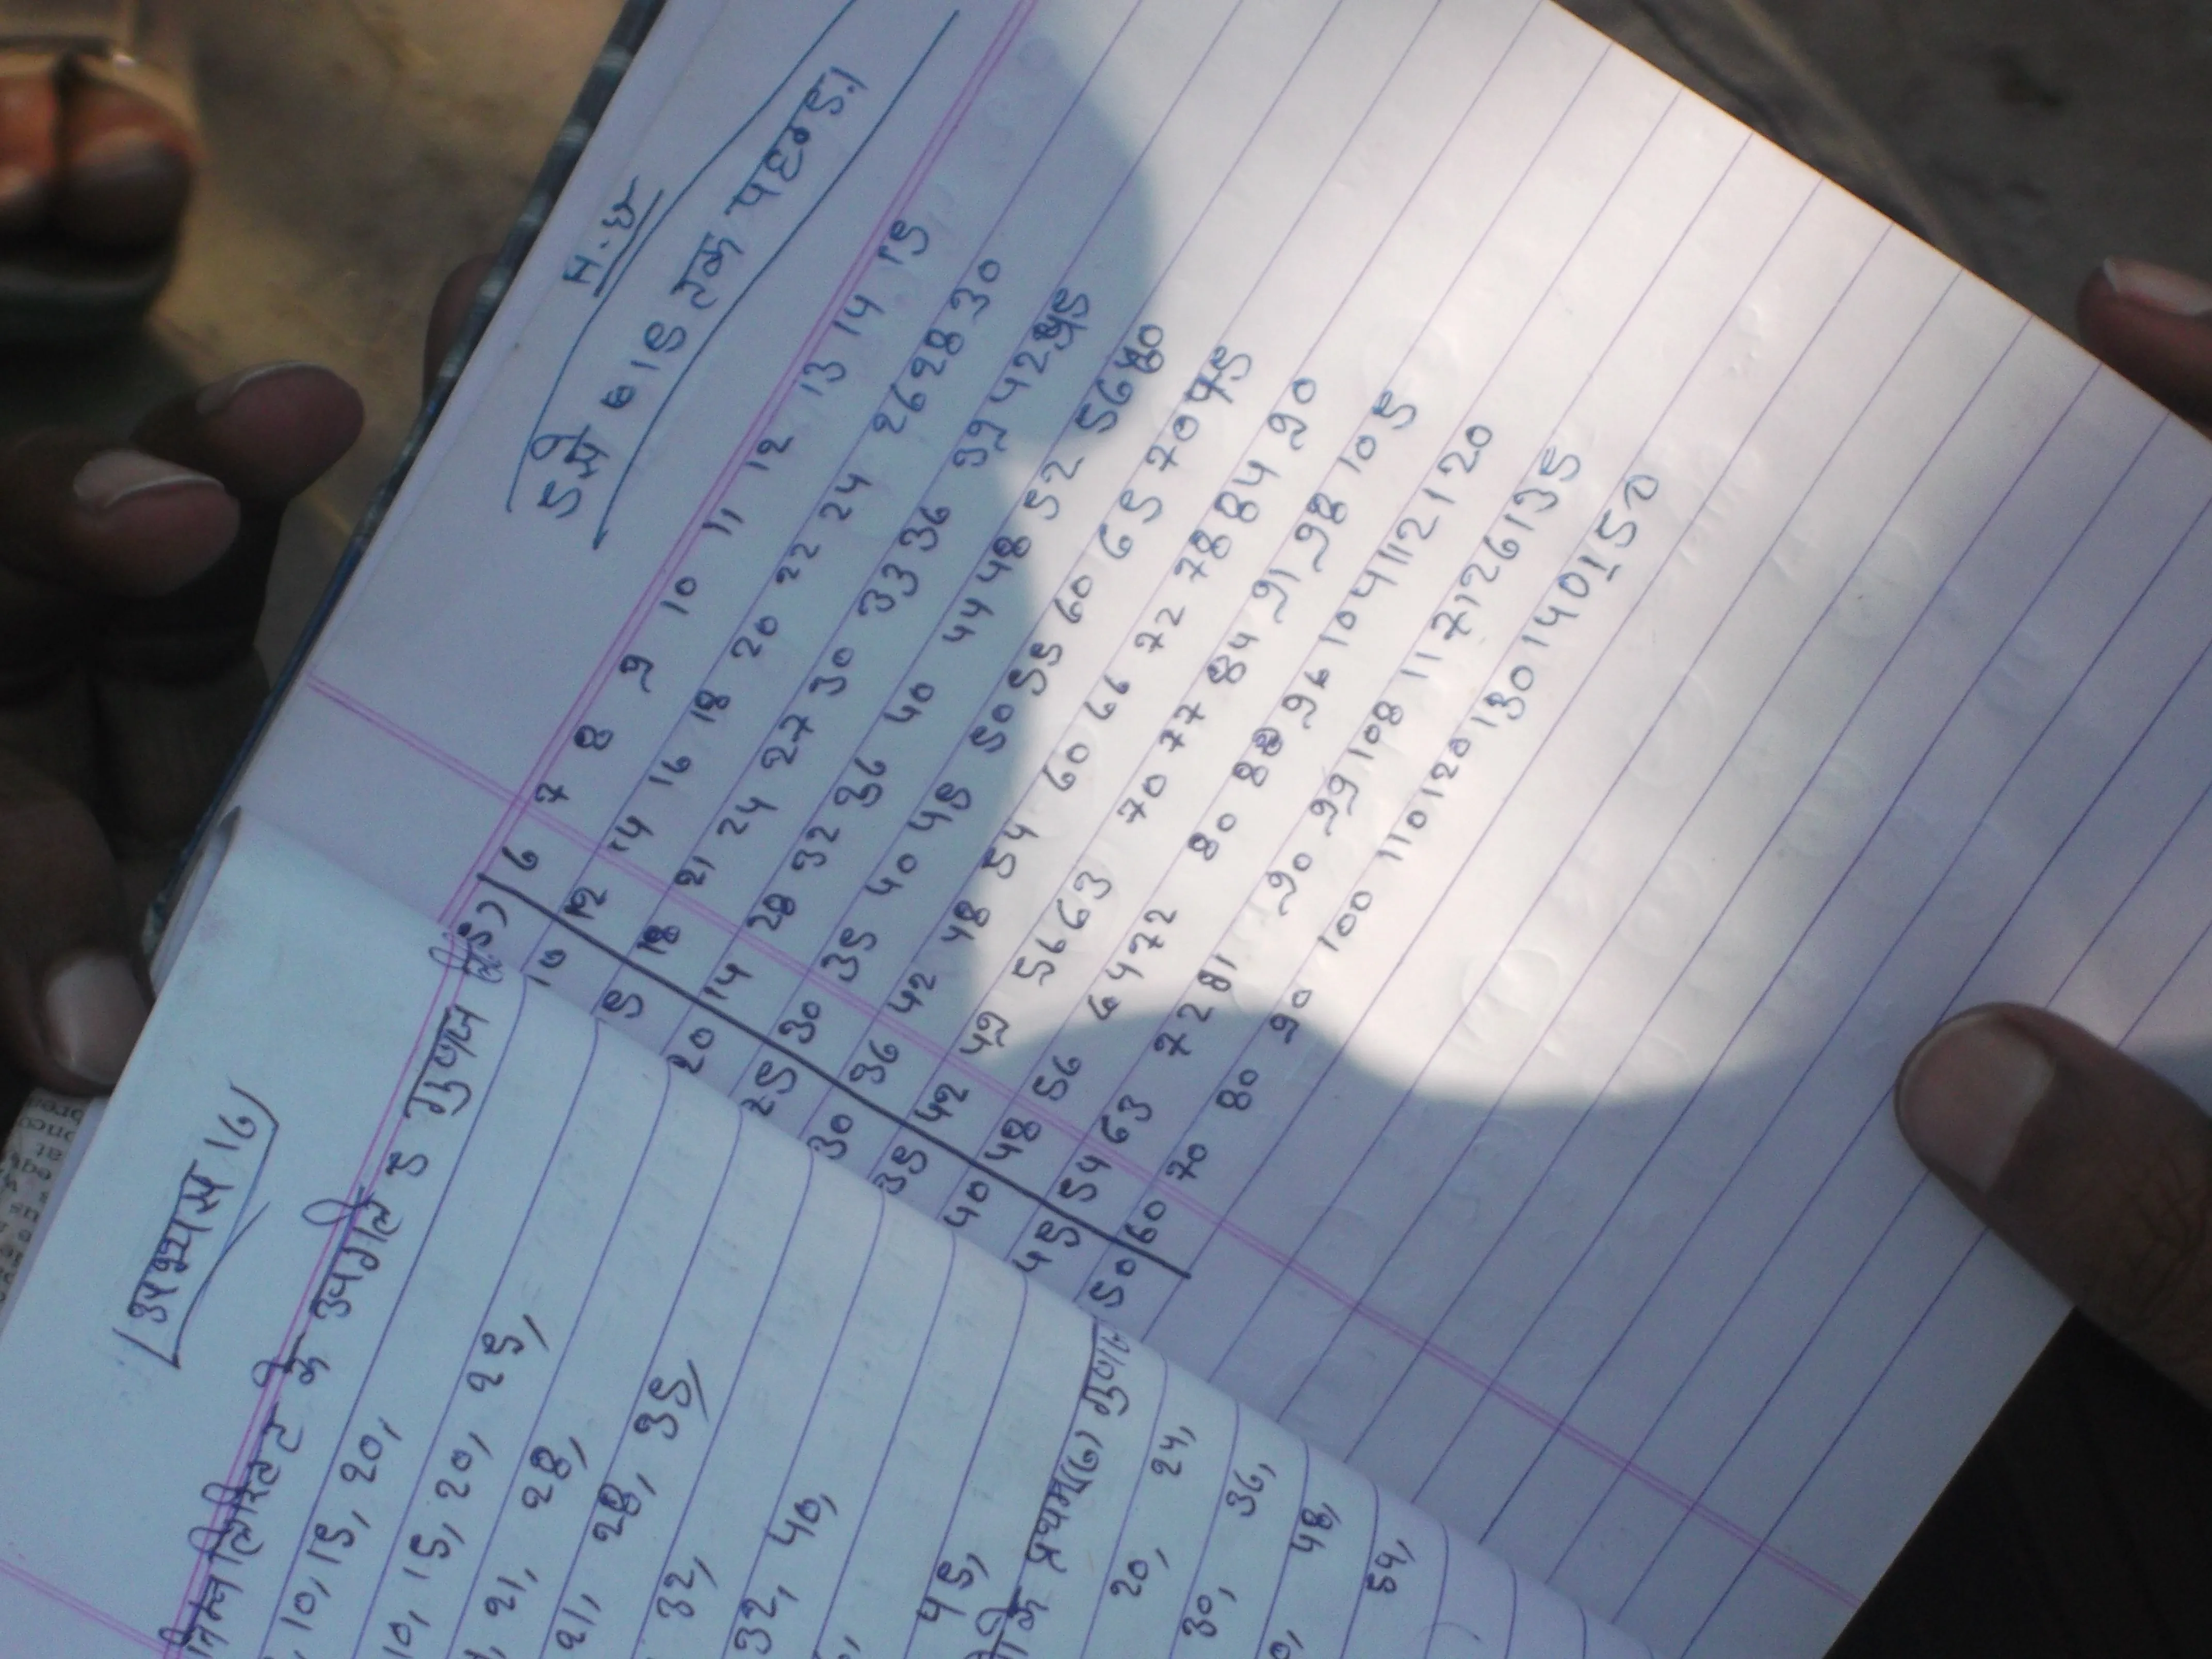 अभ्यास 16
निम्नलिखित के अगले 3 गुणज
, 10, 15, 20,
10, 15, 20, 25,
, 21, 28,
21, 28, 35,
32,
32, 40,
45,
के प्रथम(6) गुणज
20, 24,
30, 36,
48,
54,
H.W
5 से 15 तक पहाड़ा.
5 6 7 8 9 10 11 12 13 14 15
10 12 14 16 18 20 22 24 26 28 30
5 18 21 24 27 30 33 36 39 42 45
20 14 28 32 36 40 44 48 52 56 60
25 30 35 40 45 50 55 60 65 70 75
30 36 42 48 54 60 66 72 78 84 90
35 42 49 56 63 70 77 84 91 98 105
40 48 56 64 72 80 88 96 104 112 120
45 54 63 72 81 90 99 108 117 126 135
50 60 70 80 90 100 110 120 130 140 150